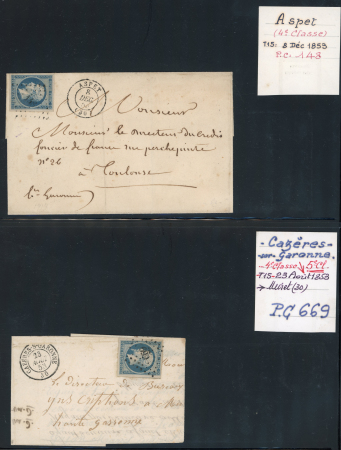 Aspet
(4e Classe)
T15: 8 Déc 1853
P.C. 143
ASPET
8
DEC.
Monsieur
Monsieur le directeur du crédit
foncier de france rue perchepinte
n° 26
à Toulouse
hte Garonne
Cazères
sur Garonne
4e Classe 5 Cl
T15-23 Aout 1853
Muret (30)
PC 669
le Directeur de
haute garonne